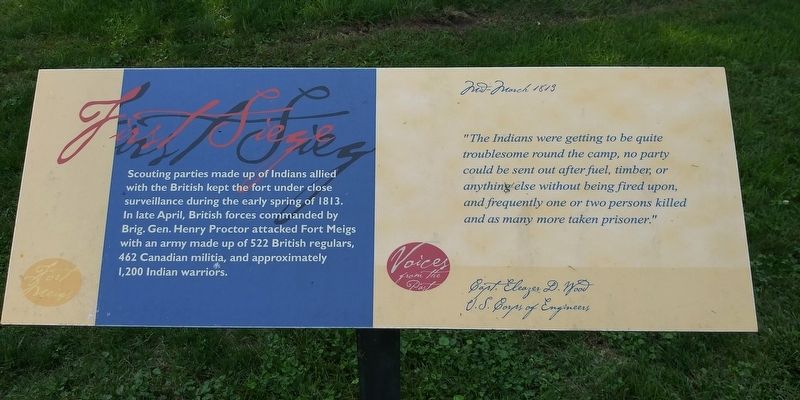 First Siege
Scouting parties made up of Indians allied
with the British kept the fort under close
surveillance during the early spring of 1813.
In late April, British forces commanded by
Brig. Gen. Henry Proctor attacked Fort Meigs
with an army made up of 522 British regulars,
462 Canadian militia, and approximately
1,200 Indian warriors.
Fort
Meigs
Mid-March 1813
"The Indians were getting to be quite
troublesome round the camp, no party
could be sent out after fuel, timber, or
anything else without being fired upon,
and frequently one or two persons killed
and as many more taken prisoner."
Voices
from the
Past
Capt. Eleazer D. Wood
U.S. Corps of Engineers